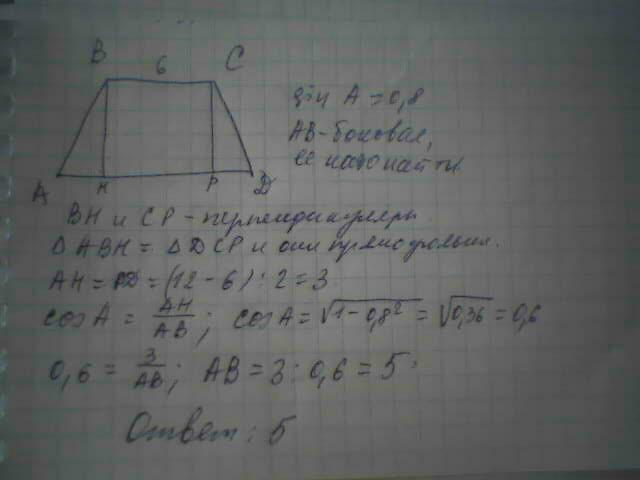 B 6 C
sin A = 0,8
AB - боковая,
её надо найти.
A H P D
BH и CP - перпендикуляры.
Δ ABH = Δ DCP и они прямоугольн.
AH = PD = (12 - 6) : 2 = 3
cos A = AH/AB; cos A = √(1 - 0,8²) = √0,36 = 0,6
0,6 = 3/AB; AB = 3 : 0,6 = 5
Ответ: 5